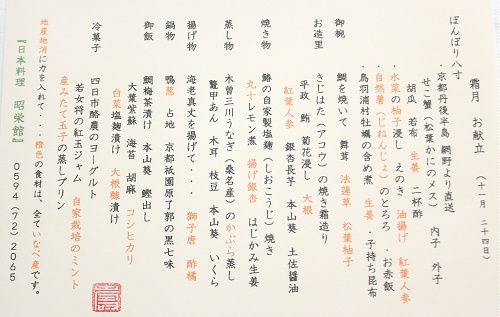 霜月 お献立 (十一月 二十四日)
ぼんぼり八寸
・京都丹後半島 網野より直送
せこ蟹(松葉かにのメス) 内子 外子
胡瓜 若布 生姜 二杯酢
・水菜の柚子浸し えのき 油揚げ 紅葉人参
・自然薯(じねんじょ)のとろろ ・お赤飯
・鳥羽浦村牡蠣の含め煮 生姜 ・子持ち昆布
御椀 鯛を焼いて 舞茸 法蓮草 松葉柚子
お造里 きじはた(アコウ)の焼き霜造り
平政 鮪 菊花浸し 大根
紅葉人参 銀杏長芋 本山葵 土佐醤油
焼き物 鰆の自家製塩麹(しおこうじ)焼き
丸十レモン煮 揚げ銀杏 はじかみ生姜
蒸し物 木曽三川うなぎ(桑名産)のかぶら蒸し
鼈甲あん 木耳 枝豆 本山葵 いくら
揚げ物 海老真丈を揚げて・・・ 獅子唐 酢橘
鍋物 鴨葱 占地 京都祇園原了郭の黒七味
御飯 鯛梅茶漬け 本山葵 鰹出し
大葉紫蘇 海苔 胡麻 コシヒカリ
白菜塩麹漬け 大根糠漬け
冷菓子 四日市酪農のヨーグルト
若女将の紅玉ジャム 自家栽培のミント
産みたて玉子の蒸しプリン
地産地消に力を入れて・・・橙色の食材は、全ていなべ産です。
『日本料理 昭栄館』 0594(72)2065